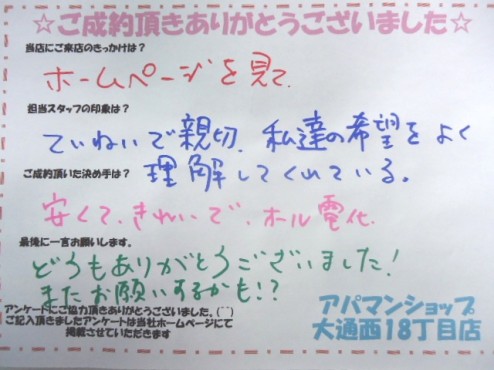 ☆ご成約頂きありがとうございました☆
当店にご来店のきっかけは?
ホームページを見て.
担当スタッフの印象は?
ていねいで親切. 私達の希望をよく
理解してくれている。
ご成約頂いた決め手は?
安くて. きれいで. オール電化.
最後に一言お願いします。
どうもありがとうございました!
またお願いするかも!?
アンケートにご協力頂きありがとうございました。(^^)
ご記入頂きましたアンケートは当社ホームページにて
掲載させていただきます
アパマンショップ
大通西18丁目店